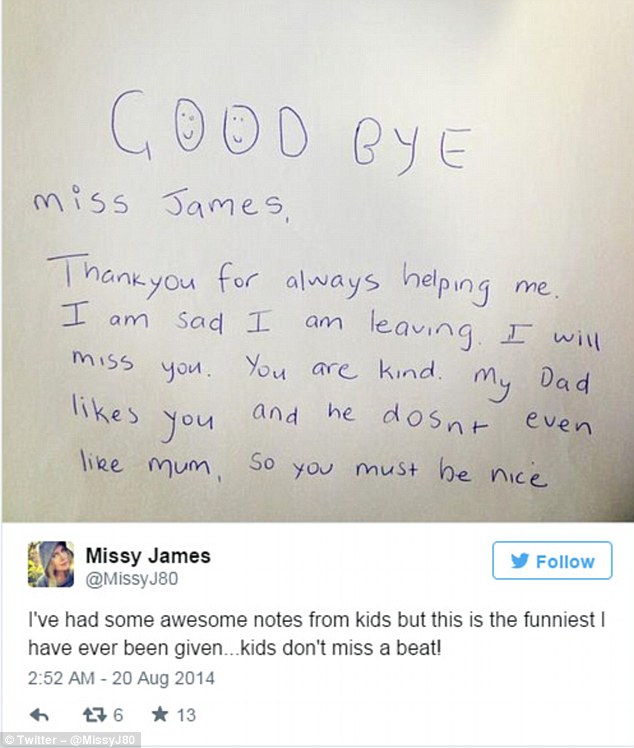 GOOD BYE
miss James,
Thankyou for always helping me.
I am sad I am leaving. I will
miss you. You are kind. My Dad
likes you and he dosnt even
like mum, so you must be nice
Missy James
@MissyJ80
Follow
I've had some awesome notes from kids but this is the funniest I
have ever been given...kids don't miss a beat!
2:52 AM - 20 Aug 2014
6 13
© Twitter – @MissyJ80